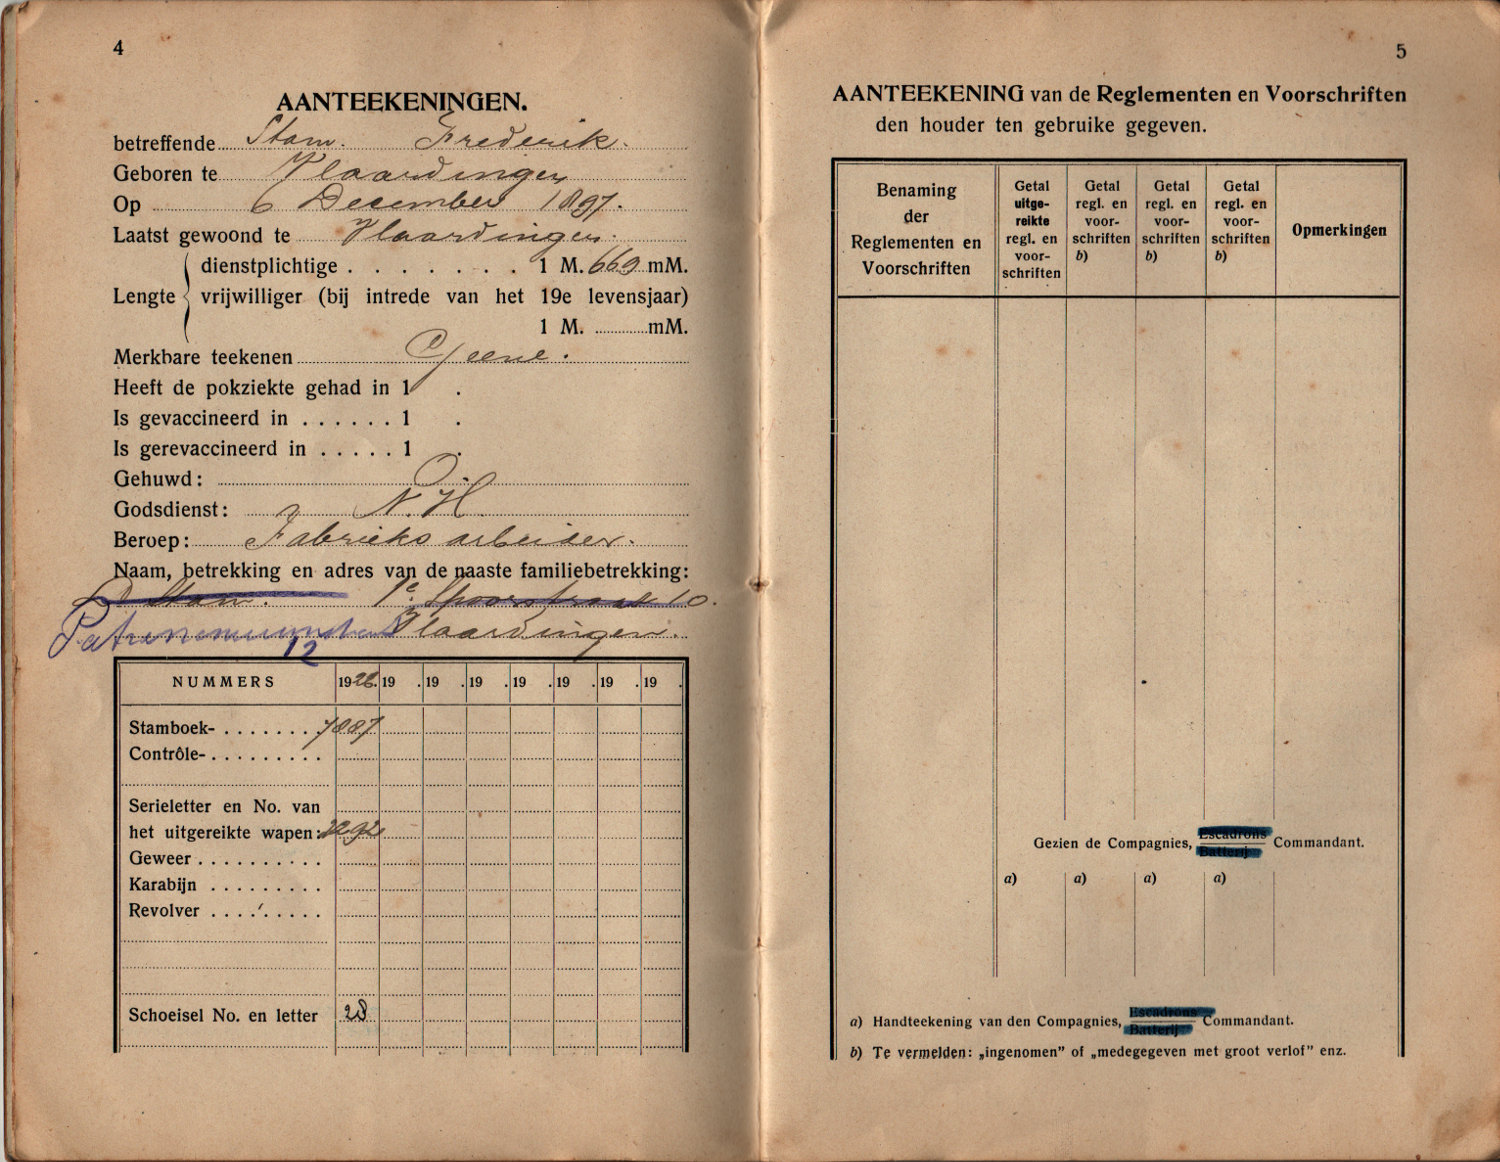 4
AANTEEKENINGEN.
betreffende Stam. Frederik.
Geboren te Vlaardingen
Op 6 December 1897.
Laatst gewoond te Vlaardingen.
dienstplichtige . . . . . . . 1 M. 669 mM.
Lengte vrijwilliger (bij intrede van het 19e levensjaar)
1 M. mM.
Merkbare teekenen Geene.
Heeft de pokziekte gehad in 1 .
Is gevaccineerd in . . . . . . 1 .
Is gerevaccineerd in . . . . . 1 .
Gehuwd: O.
Godsdienst: N. H.
Beroep: Fabrieksarbeider.
Naam, betrekking en adres van de naaste familiebetrekking:
Stam. 1e Spoorstraat 10.
Vlaardingen.
12
NUMMERS 1928. 19 . 19 . 19 . 19 . 19 . 19 . 19 .
Stamboek- . . . . . . . 7887
Contrôle- . . . . . . . . .
Serieletter en No. van
het uitgereikte wapen: 2292
Geweer . . . . . . . . . .
Karabijn . . . . . . . . .
Revolver . . . . . . . . .
Schoeisel No. en letter 28
5
AANTEEKENING van de Reglementen en Voorschriften
den houder ten gebruike gegeven.
Benaming der Reglementen en Voorschriften
Getal uitge-reikte regl. en voor-schriften
Getal regl. en voor-schriften b)
Getal regl. en voor-schriften b)
Getal regl. en voor-schriften b)
Opmerkingen
Gezien de Compagnies, Escadrons Batterij Commandant.
a) a) a) a)
a) Handteekening van den Compagnies, Escadrons Batterij Commandant.
b) Te vermelden: „ingenomen" of „medegegeven met groot verlof" enz.